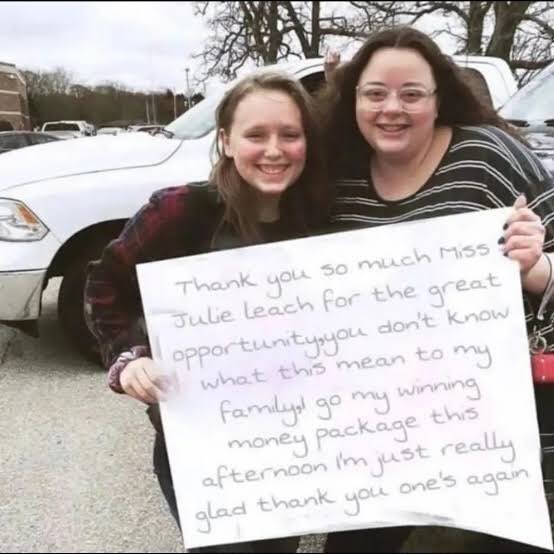 Thank you so much Miss
Julie leach for the great
opportunity,you don't know
what this mean to my
family,I go my winning
money package this
afternoon I'm just really
glad thank you one's again